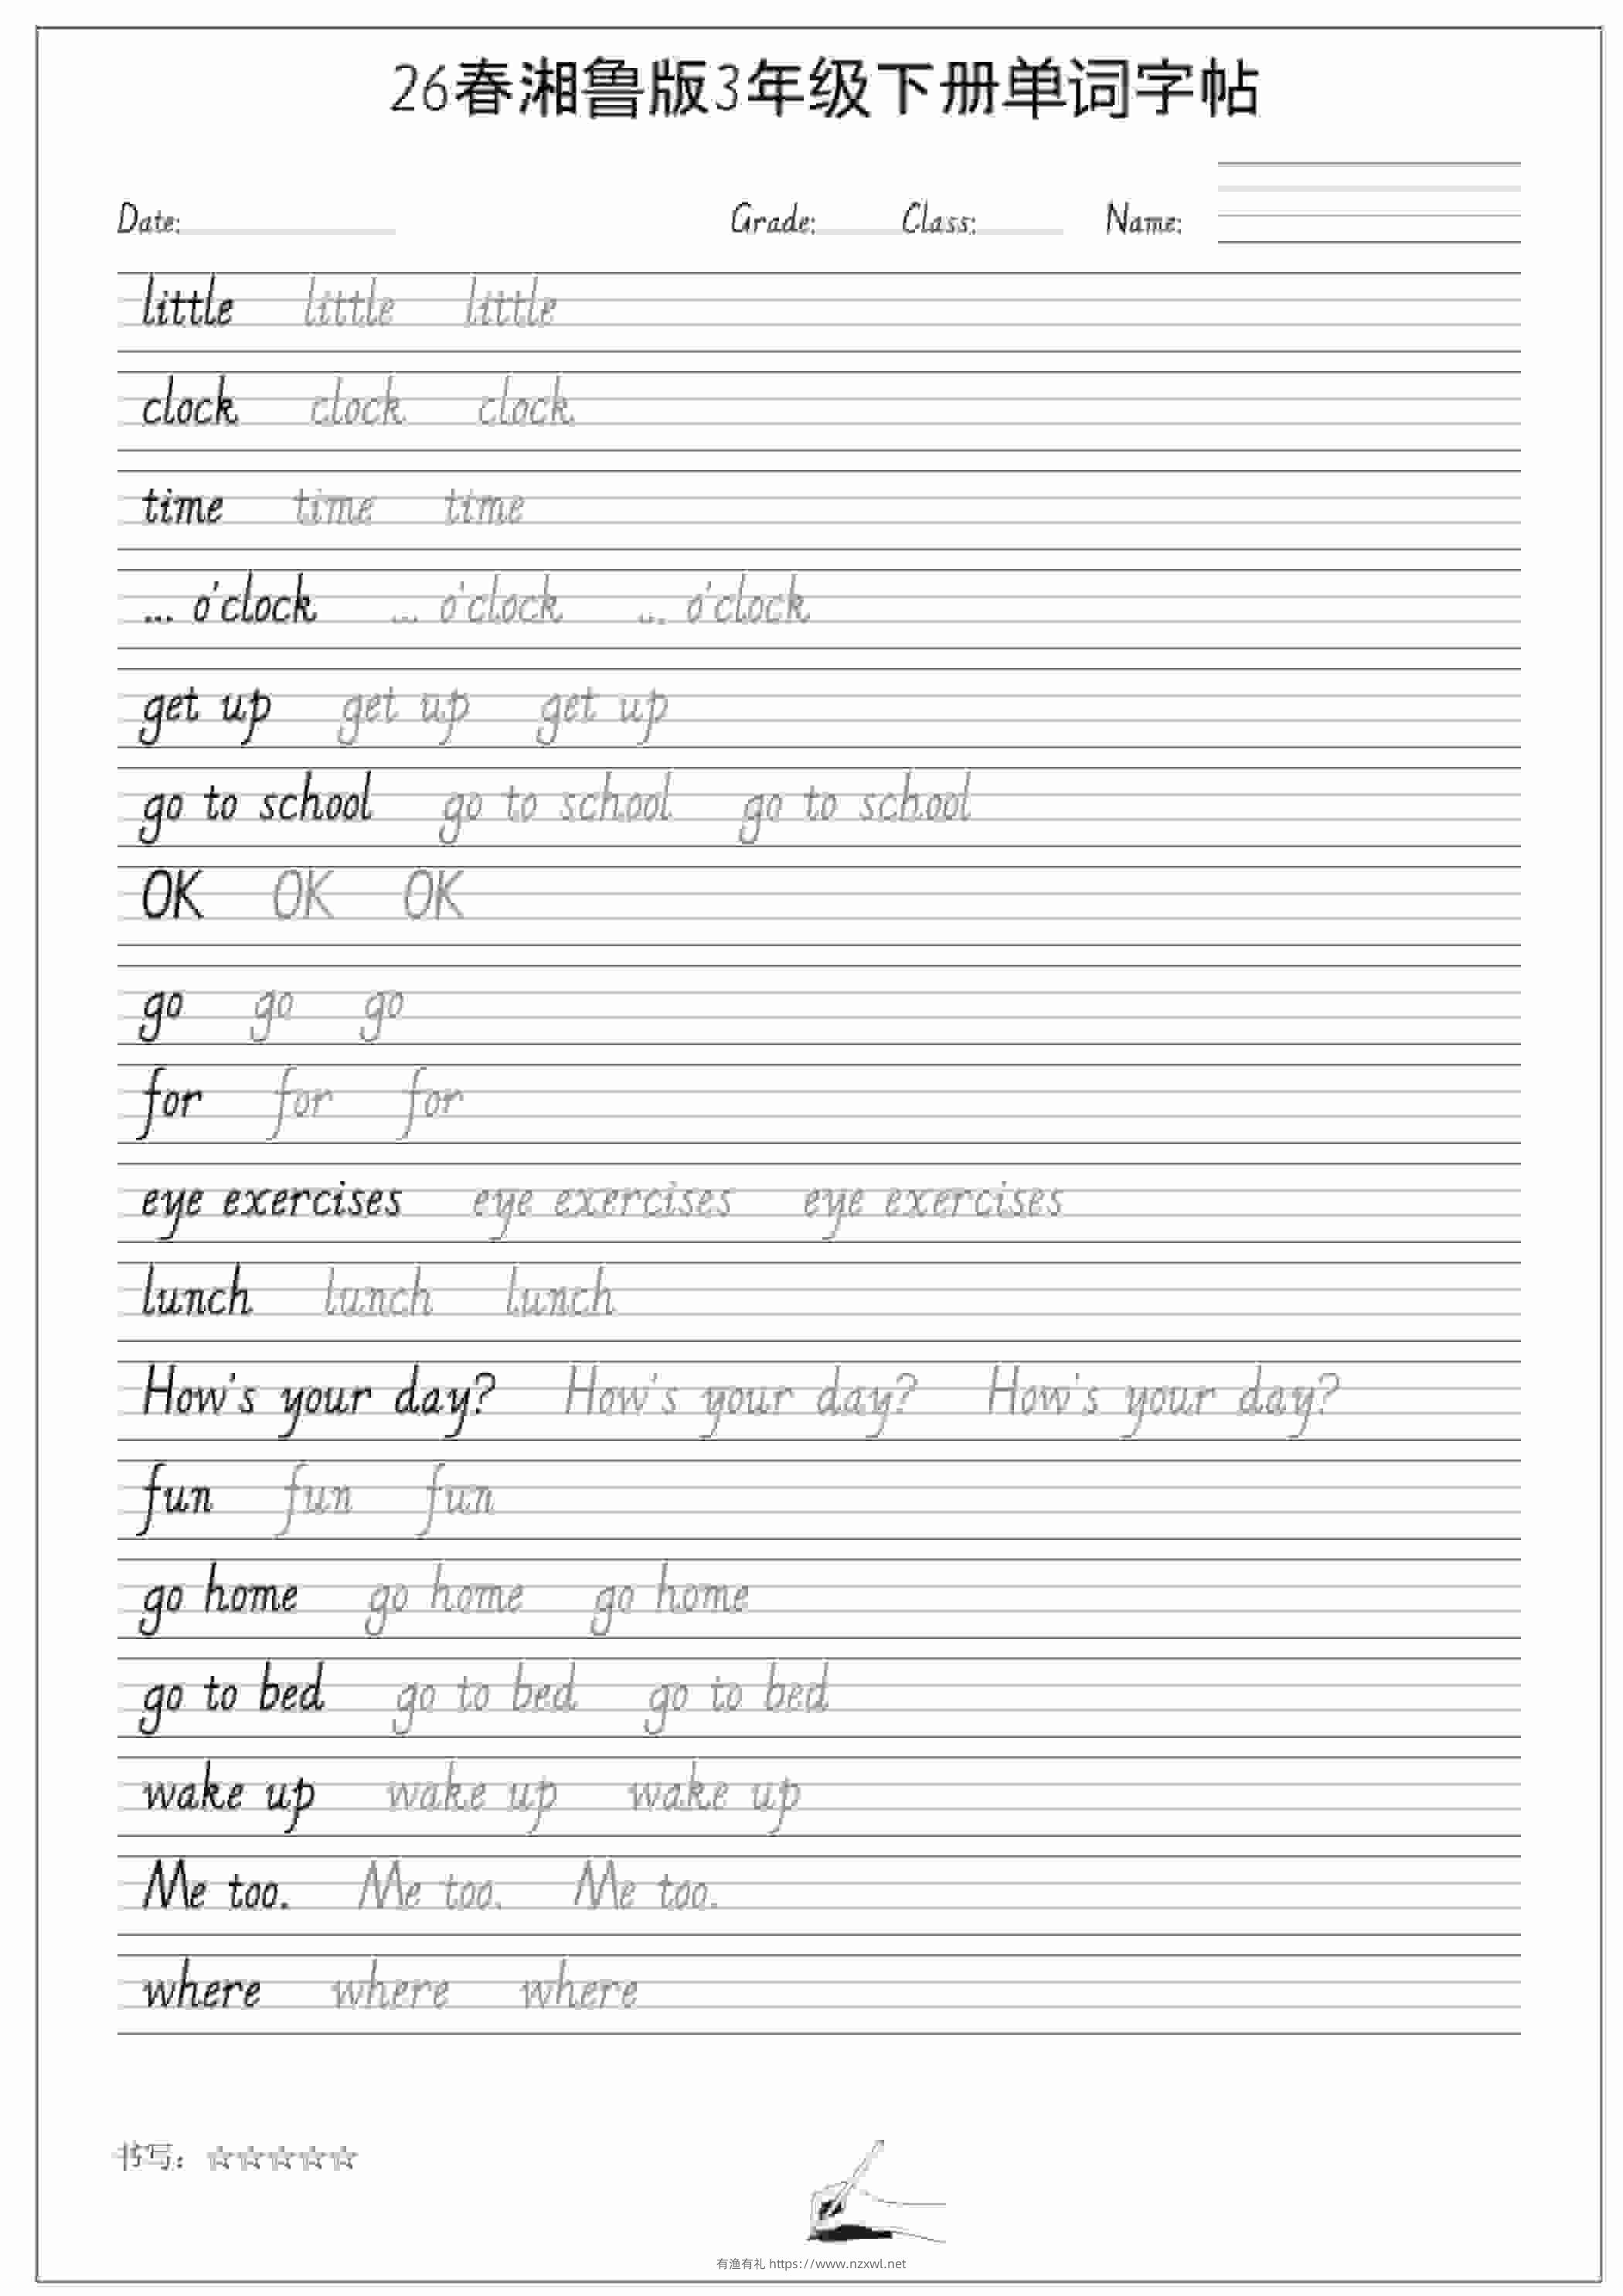 26春湘鲁版3年级下册单词字帖
Date: Grade: Class: Name:
little little little
clock clock clock
time time time
... o'clock ... o'clock ... o'clock
get up get up get up
go to school go to school go to school
OK OK OK
go go go
for for for
eye exercises eye exercises eye exercises
lunch lunch lunch
How's your day? How's your day? How's your day?
fun fun fun
go home go home go home
go to bed go to bed go to bed
wake up wake up wake up
Me too. Me too. Me too.
where where where
书写：☆☆☆☆☆
有渔有礼 https://www.nzxwl.net